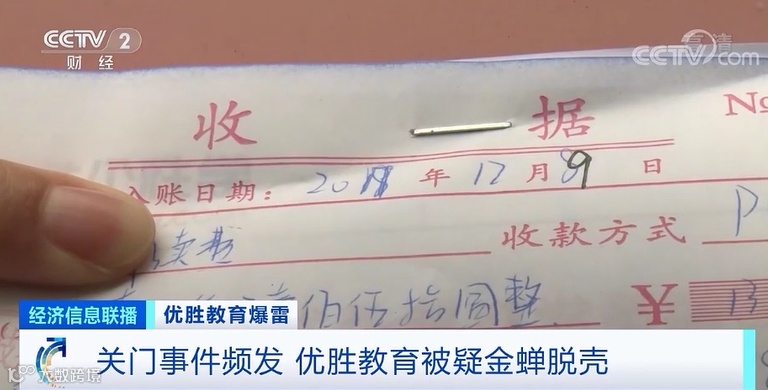 CCTV 2
财经
高清
CCTV.com
收 据
No
入账日期: 年 12 月 9 日
收款方式 P
佰伍拾圆整 ¥ 13
经济信息联播 优胜教育爆雷
关门事件频发 优胜教育被疑金蝉脱壳
大数跨境